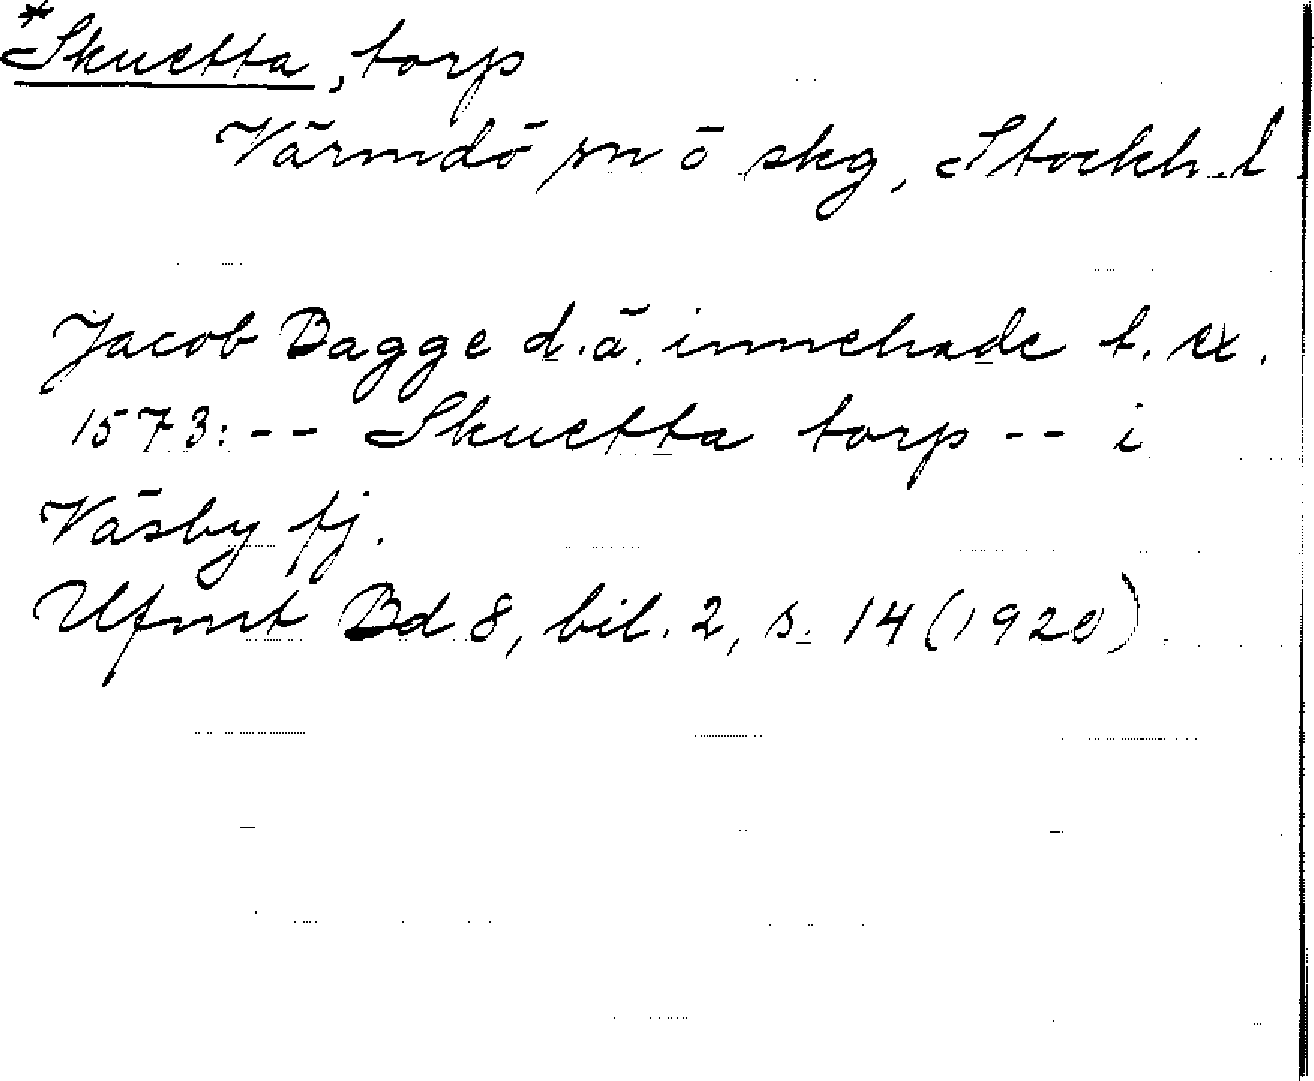 *Skuetta, torp
Värmdö sn ö skg, Stockh. l
Jacob Bagge d.ä. innehade t. ex.
1573: -- Skuetta torp -- i
Väsby fj.
Ufmt Bd 8, bil. 2, s. 14 (1920).